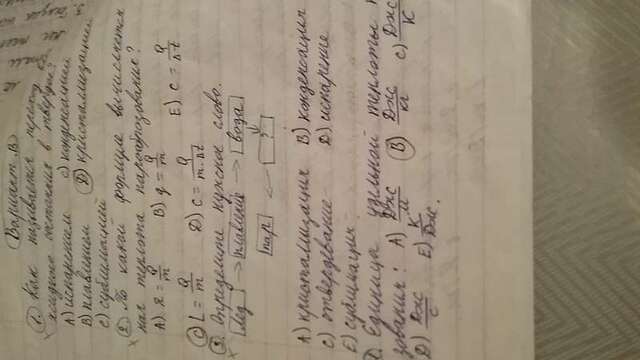 Вариант B
1. Как называется переход
жидкого состояния в твердое?
A) испарением C) конденсацией
B) плавлением D) кристализацией
C) сублимацией
2. По какой формуле вычисляется
ная теплота парообразования?
A) λ = Q/m B) q = Q/m E) C = Q/Δt
C) L = Q/m D) C = Q/m·Δt
3. Определите нужное слово.
лёд → плавление → вода
пар ← ?
A) кристализация B) конденсация
C) отвердевание D) испарение
E) сублимация
Единица удельной теплоты
зования: A) Дж/м B) Дж/кг C) Дж/К
D) Дж/с E) К/Дж.